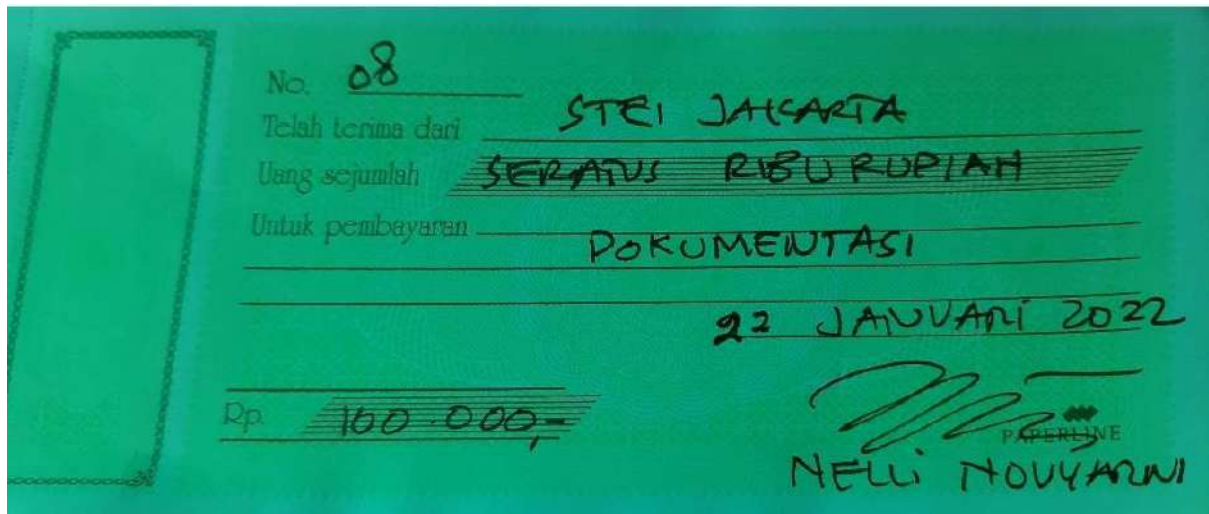 No. 08
Telah terima dari STEI JAKARTA
Uang sejumlah SERATUS RIBU RUPIAH
Untuk pembayaran DOKUMENTASI
22 JANUARI 2022
Rp. 100.000,-
PAPERLINE
NELLI NOVYARNI